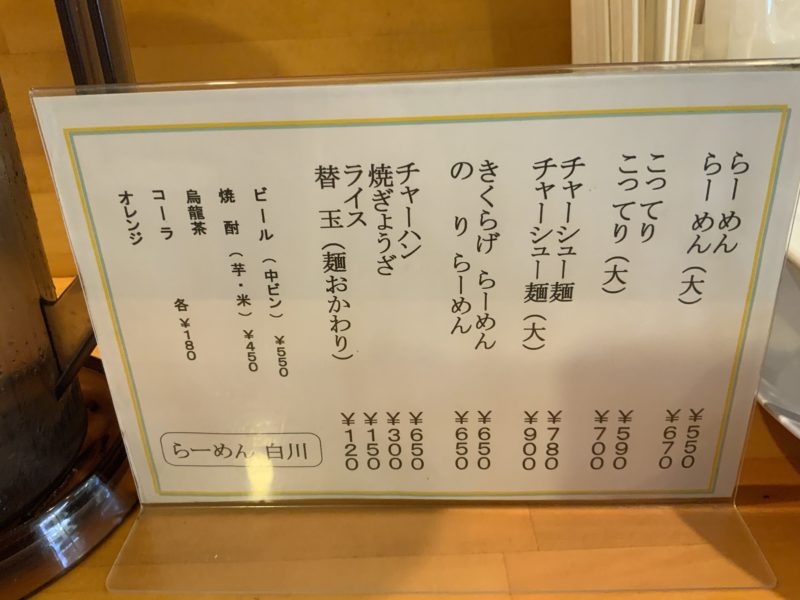 らーめん ¥550
らーめん(大) ¥670
こってり ¥590
こってり(大) ¥700
チャーシュー麺 ¥780
チャーシュー麺(大) ¥900
きくらげ らーめん ¥650
の り らーめん ¥650
チャーハン ¥650
焼ぎょうざ ¥300
ライス ¥150
替 玉(麺おかわり) ¥120
ビール(中ビン) ¥550
焼 酎(芋・米) ¥450
烏龍茶
コーラ
オレンジ
各¥180
らーめん 白川